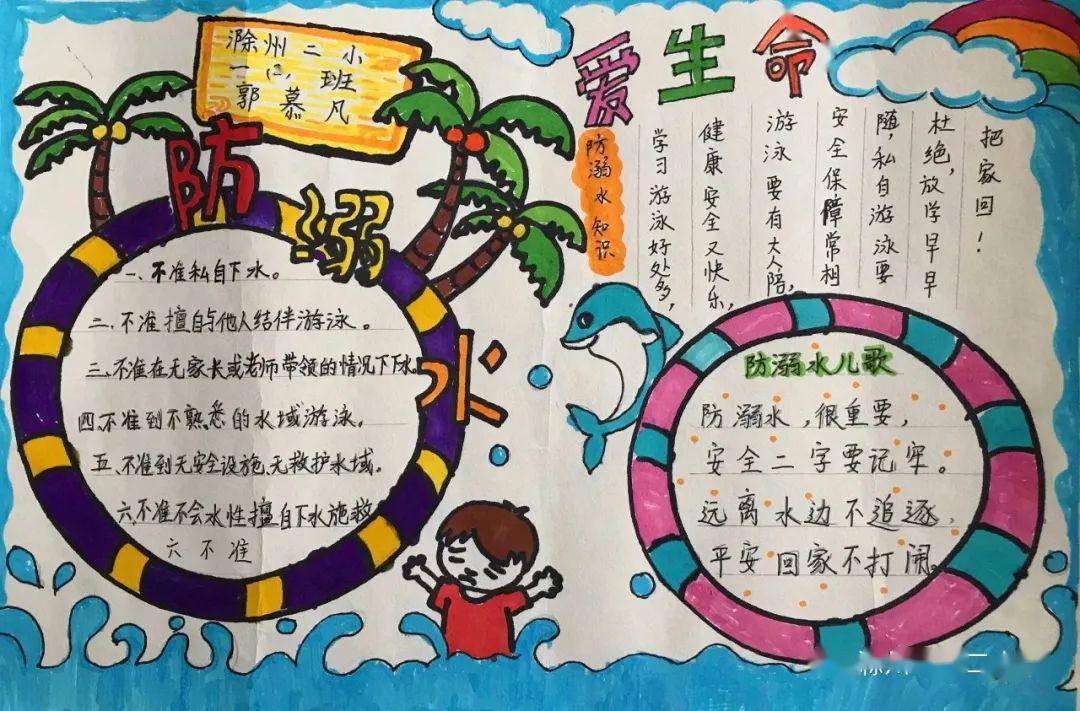 滁州二小
一 班
郭慕凡
防溺水
爱生命
一、不准私自下水。
二、不准擅自与他人结伴游泳。
三、不准在无家长或老师带领的情况下下水。
四、不准到不熟悉的水域游泳。
五、不准到无安全设施、无救护水域。
六、不准不会水性擅自下水施救
六不准
防溺水知识
学习游泳好处多，
健康安全又快乐，
游泳要有大人陪，
安全保障常相
随，私自游泳要
杜绝，放学早早
把家回！
防溺水儿歌
防溺水，很重要，
安全二字要记牢。
远离水边不追逐，
平安回家不打闹。